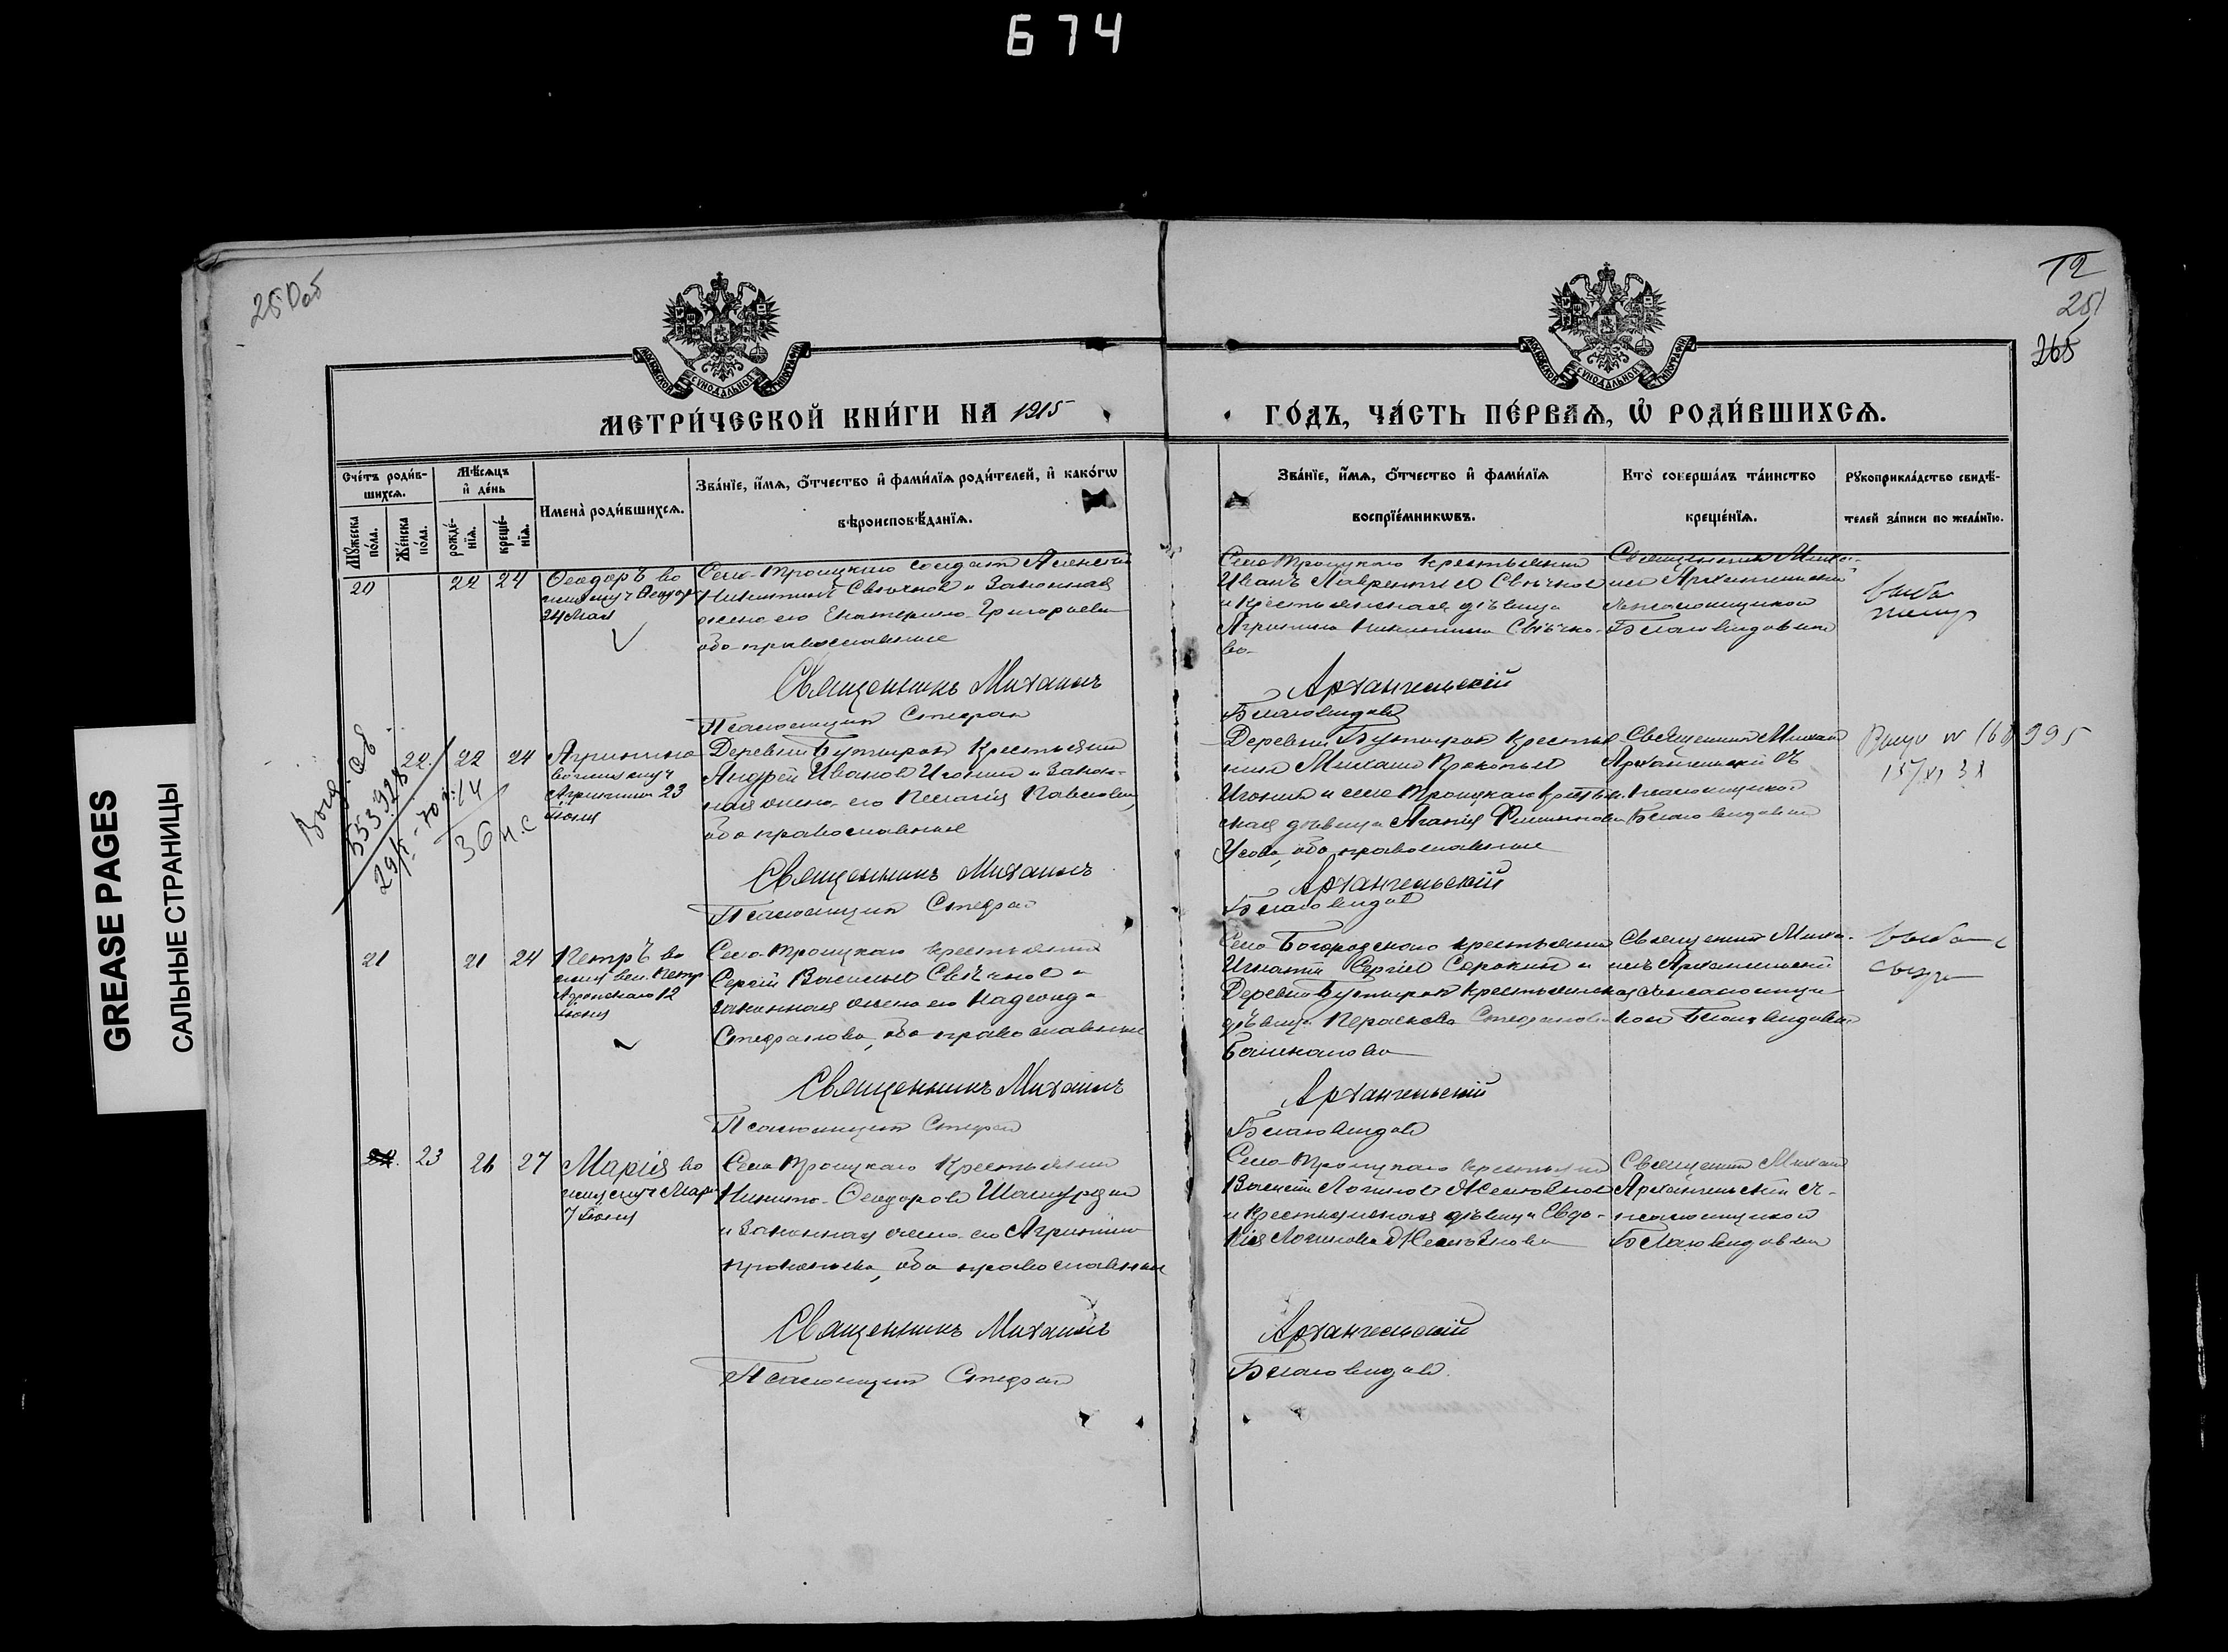 674
GREASE PAGES
САЛЬНЫЕ СТРАНИЦЫ
250об
12
251
265
МОСКОВСКОЙ СѴНОДАЛЬНОЙ ТИПОГРАФІИ
МОСКОВСКОЙ СѴНОДАЛЬНОЙ ТИПОГРАФІИ
МЕТРИ́ЧЕСКОЙ КНИ́ГИ НА 1915
ГО́ДЪ, ЧА́СТЬ ПЕ́РВАѦ, Ѡ҆ РОДИ́ВШИХСѦ.
Сче́тъ роди́в-
шихсѧ.
Мѣ́сѧцъ
и҆ де́нь
Мꙋ́жеска
по́ла.
Же́нска
по́ла.
рожде́-
нїѧ.
креще́-
нїѧ.
Имена̀ роди́вшихсѧ.
Зва́нїе, и҆́мѧ, ѻ҆́тчество и҆ фами́лїѧ роди́телей, и҆ како́гѡ
вѣроисповѣ́данїѧ.
Зва́нїе, и҆́мѧ, ѻ҆́тчество и҆ фами́лїѧ
воспрїе́мникѡвъ.
Кто̀ соверша́лъ та́инство
креще́нїѧ.
Рꙋкоприкла́дство свидѣ́-
телей за́писи по жела́нїю.
20
22 24
Ѳеодоръ во
24 Мая
Село-Троицкаго солдат
Никитинъ Свѣчнов и Законная
жена его Екатерина Григорьева
оба православные
Священникъ Михаилъ
Псаломщик Стефан
Село Троицкаго крестьянин
Иванъ Лаврентьев Свѣчнов
и Крестьянская дѣвица
Агрипина Никитина Свѣчно-
ва
Архангельскій
Благовидов
Священник Миха-
ил Архангельский
с псаломщиком
Благовидовым
22. 22 24
Агрипина
Агрипины 23
Іюня
Деревни Бутырок Крестьянин
Андрей Иванов Игонин и Закон-
ная жена его Пелагія Павлова,
оба православные
Священникъ Михаилъ
Псаломщик Стефан
Деревни Бутырок Крестья-
нин Михаил Прокопьев
Игонин и села Троицкаго Крестьян-
ская дѣвица Агапия Филиппова
Усова, оба православные
Архангельскій
Благовидов
Священник Михаил
Архангельский съ
псаломщиком
Благовидовым
995
553928
36 н.с
21
21 24
Петръ во
Аѳонскаго 12
Іюня
Село-Троицкаго крестьянин
Сергій Васильев Свѣчнов и
законная жена его Надежда
Стефанова, оба православные
Священникъ Михаилъ
Псаломщик Стефан
Село Богородскаго крестьянин
Игнатий Сергіев Сорокин и
Деревни Бутырок крестьянская
дѣвица Параскева Стефанова
Балыканова
Архангельскій
Благовидов
Священник Миха-
илъ Архангельский
с псаломщи-
ком Благовидовым
23 26 27
Марія во
7 Іюня
Село Троицкаго Крестьянин
Никита Ѳеодоров
и Законная жена его Агрипина
Прокопьева, оба православные
Священникъ Михаилъ
Псаломщик Стефан
Село-Троицкаго крестьянин
Василий Логинов
и Крестьянская дѣвица Евдо-
кія Логинова
Архангельскій
Благовидов.
Священник Михаил
Архангельский с
псаломщиком
Благовидовым